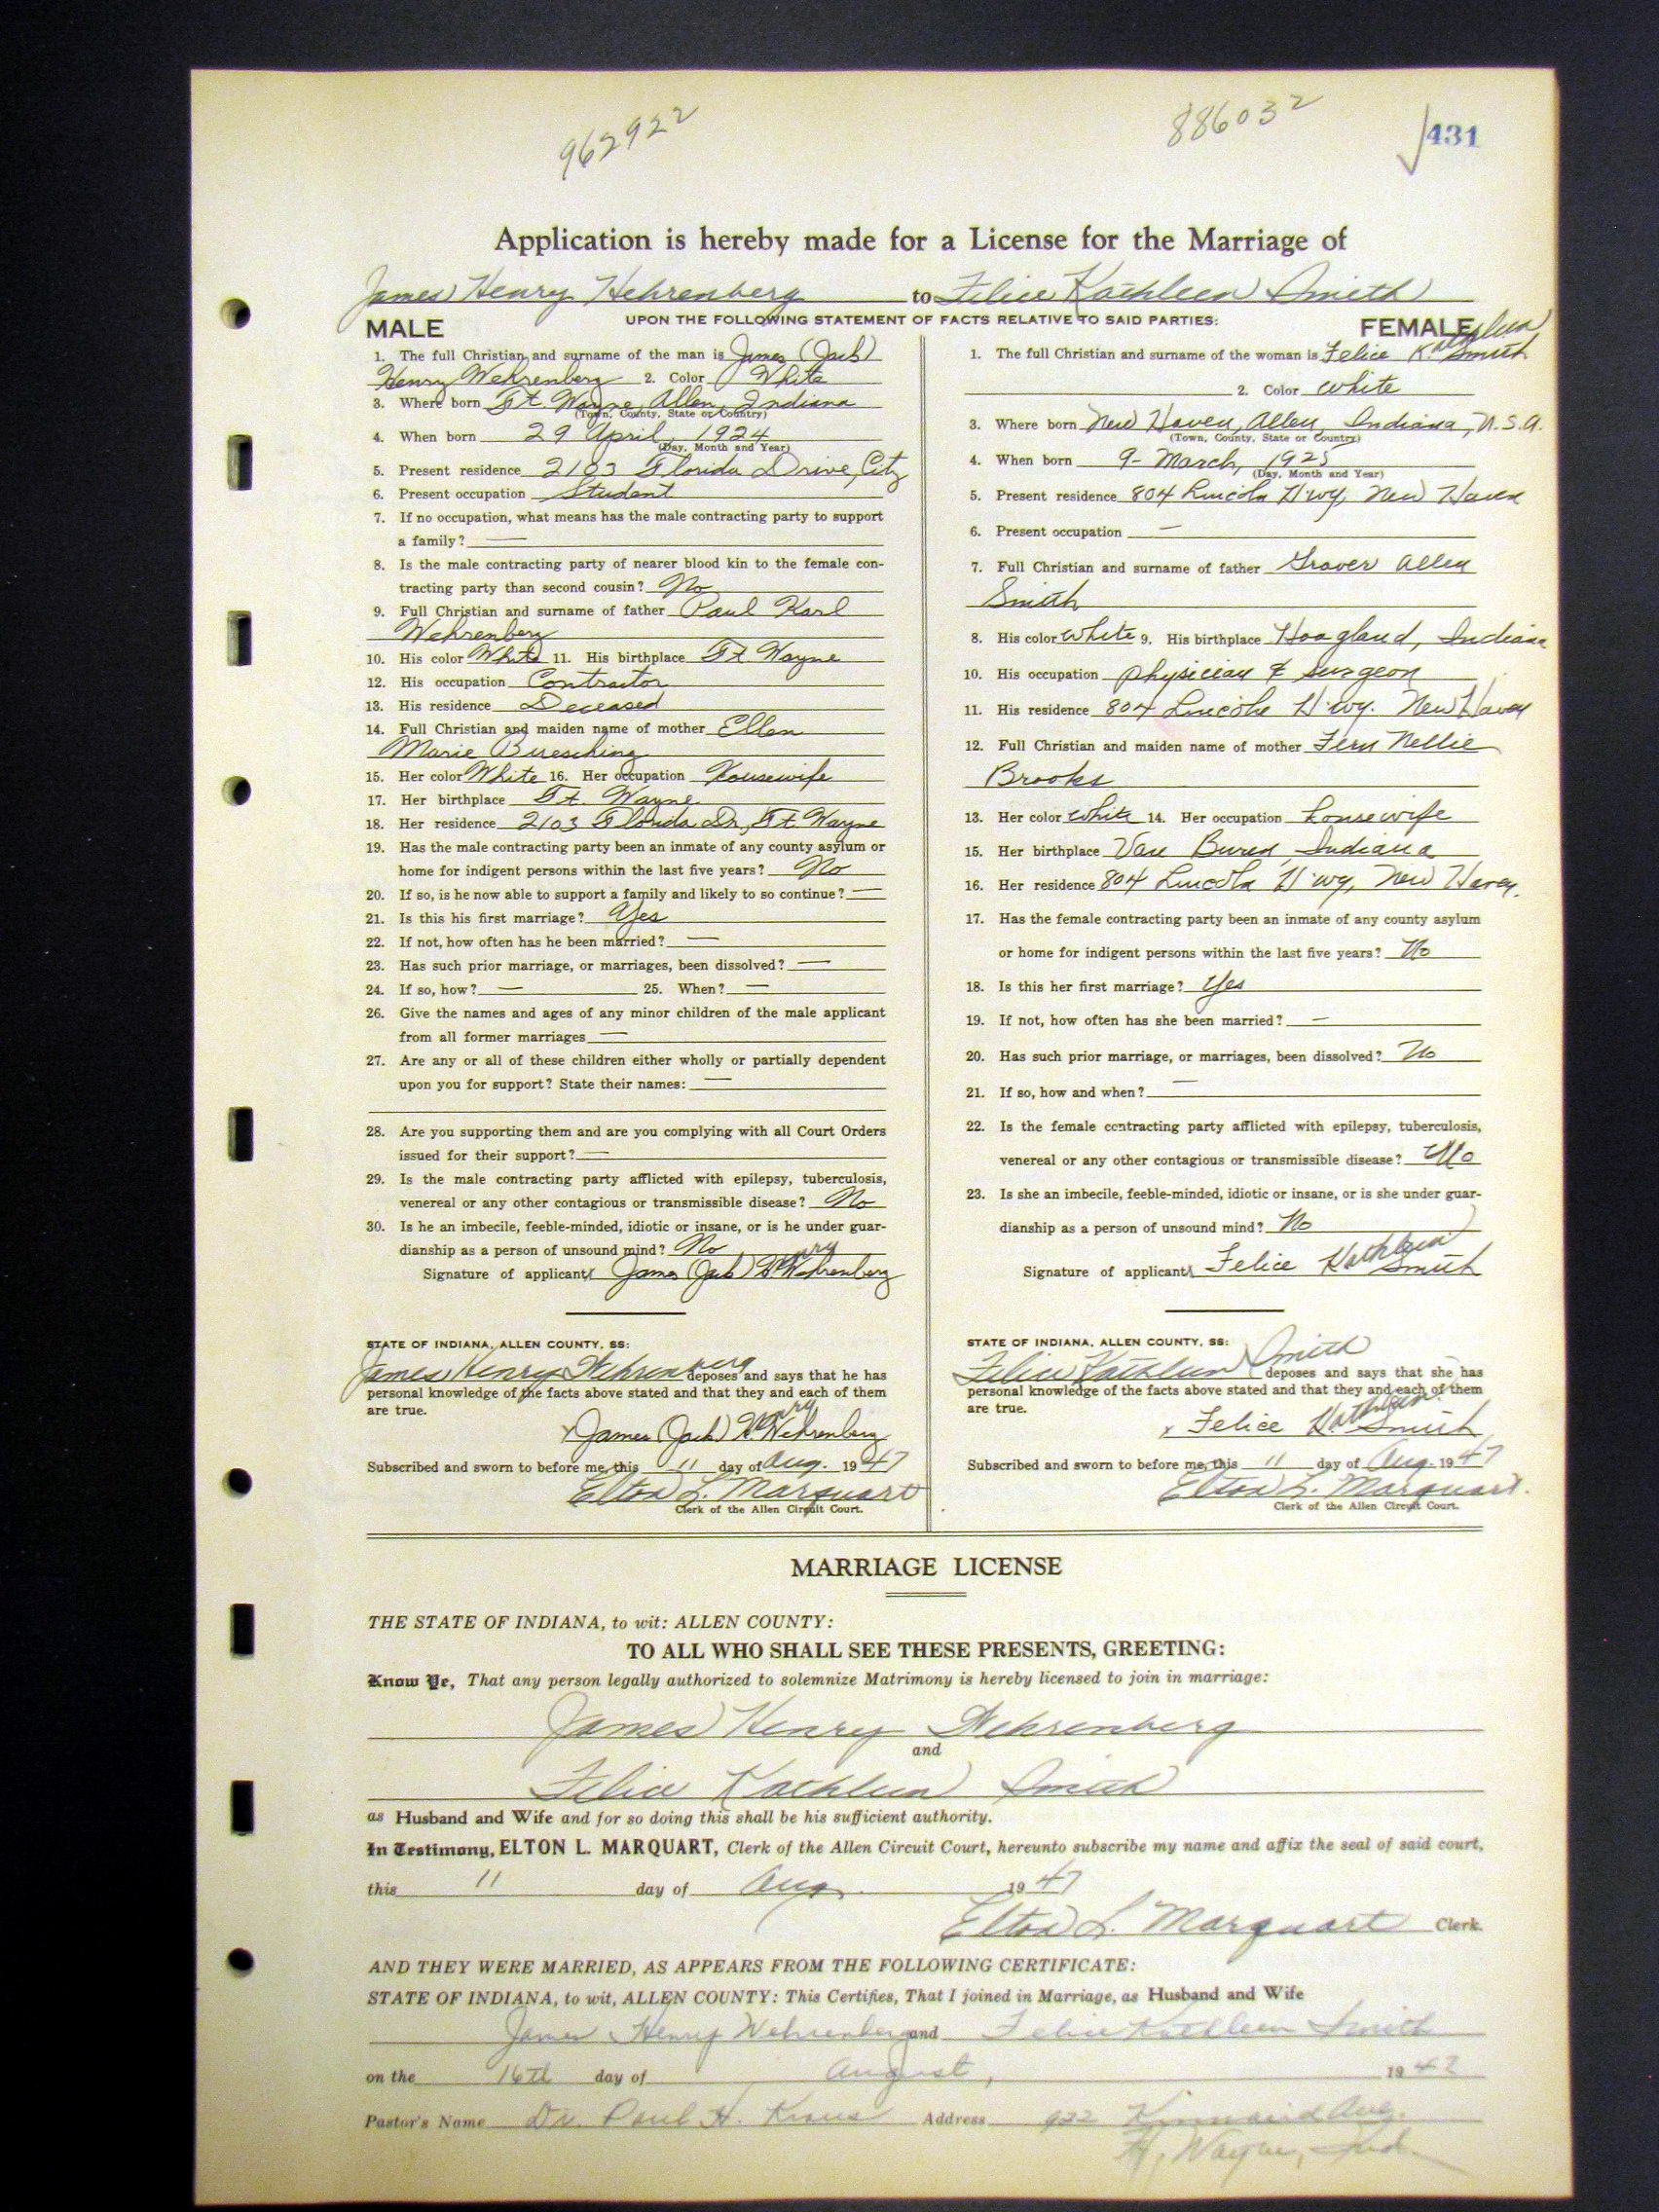 962922
886032
431
Application is hereby made for a License for the Marriage of
James Henry Wehrenberg to Felice Kathleen Smith
UPON THE FOLLOWING STATEMENT OF FACTS RELATIVE TO SAID PARTIES:
MALE
1. The full Christian and surname of the man is James (Jack)
Henry Wehrenberg 2. Color White
3. Where born Ft. Wayne, Allen, Indiana
(Town, County, State or Country)
4. When born 29 April, 1924
(Day, Month and Year)
5. Present residence 2103 Florida Drive, City
6. Present occupation Student
7. If no occupation, what means has the male contracting party to support
a family? —
8. Is the male contracting party of nearer blood kin to the female con-
tracting party than second cousin? No
9. Full Christian and surname of father Paul Karl
Wehrenberg
10. His color White 11. His birthplace Ft. Wayne
12. His occupation Contractor
13. His residence Deceased
14. Full Christian and maiden name of mother Ellen
Marie Buesching
15. Her color White 16. Her occupation Housewife
17. Her birthplace Ft. Wayne
18. Her residence 2103 Florida Dr., Ft. Wayne
19. Has the male contracting party been an inmate of any county asylum or
home for indigent persons within the last five years? No
20. If so, is he now able to support a family and likely to so continue? —
21. Is this his first marriage? Yes
22. If not, how often has he been married? —
23. Has such prior marriage, or marriages, been dissolved? —
24. If so, how? — 25. When? —
26. Give the names and ages of any minor children of the male applicant
from all former marriages —
27. Are any or all of these children either wholly or partially dependent
upon you for support? State their names: —
28. Are you supporting them and are you complying with all Court Orders
issued for their support? —
29. Is the male contracting party afflicted with epilepsy, tuberculosis,
venereal or any other contagious or transmissible disease? No
30. Is he an imbecile, feeble-minded, idiotic or insane, or is he under guar-
dianship as a person of unsound mind? No
Signature of applicant James (Jack) Henry Wehrenberg
STATE OF INDIANA, ALLEN COUNTY, SS:
James Henry Wehrenberg deposes and says that he has
personal knowledge of the facts above stated and that they and each of them
are true.
x James (Jack) Henry Wehrenberg
Subscribed and sworn to before me, this 11 day of Aug. 1947
Elton L. Marquart
Clerk of the Allen Circuit Court.
FEMALE
1. The full Christian and surname of the woman is Felice Kathleen Smith
2. Color White
3. Where born New Haven, Allen, Indiana, U.S.A.
(Town, County, State or Country)
4. When born 9 - March, 1925
(Day, Month and Year)
5. Present residence 804 Lincoln H'wy, New Haven
6. Present occupation —
7. Full Christian and surname of father Grover Allen
Smith
8. His color White 9. His birthplace Hoagland, Indiana
10. His occupation physician & surgeon
11. His residence 804 Lincoln H'wy. New Haven
12. Full Christian and maiden name of mother Fern Nellie
Brooks
13. Her color White 14. Her occupation housewife
15. Her birthplace Van Buren, Indiana
16. Her residence 804 Lincoln H'wy, New Haven.
17. Has the female contracting party been an inmate of any county asylum
or home for indigent persons within the last five years? No
18. Is this her first marriage? Yes
19. If not, how often has she been married? —
20. Has such prior marriage, or marriages, been dissolved? No
21. If so, how and when? —
22. Is the female contracting party afflicted with epilepsy, tuberculosis,
venereal or any other contagious or transmissible disease? No
23. Is she an imbecile, feeble-minded, idiotic or insane, or is she under guar-
dianship as a person of unsound mind? No
Signature of applicant Felice Kathleen Smith
STATE OF INDIANA, ALLEN COUNTY, SS:
Felice Kathleen Smith deposes and says that she has
personal knowledge of the facts above stated and that they and each of them
are true.
x Felice Kathleen Smith
Subscribed and sworn to before me, this 11 day of Aug. 1947
Elton L. Marquart.
Clerk of the Allen Circuit Court.
MARRIAGE LICENSE
THE STATE OF INDIANA, to wit: ALLEN COUNTY:
TO ALL WHO SHALL SEE THESE PRESENTS, GREETING:
Know Ye, That any person legally authorized to solemnize Matrimony is hereby licensed to join in marriage:
James Henry Wehrenberg
and
Felice Kathleen Smith
as Husband and Wife and for so doing this shall be his sufficient authority.
In Testimony, ELTON L. MARQUART, Clerk of the Allen Circuit Court, hereunto subscribe my name and affix the seal of said court,
this 11 day of Aug. 1947
Elton L. Marquart Clerk.
AND THEY WERE MARRIED, AS APPEARS FROM THE FOLLOWING CERTIFICATE:
STATE OF INDIANA, to wit, ALLEN COUNTY: This Certifies, That I joined in Marriage, as Husband and Wife
James Henry Wehrenberg and Felice Kathleen Smith
on the 16th day of August, 1947
Pastor's Name Dr. Paul H. Kraus Address 922 Kinnaird Ave.
Ft. Wayne, Ind.